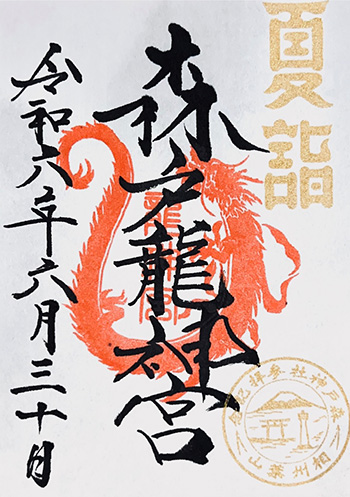 夏詣
森戸龍神宮
令和六年六月三十日
龍神宮
森戸神社参拝記念
相州葉山